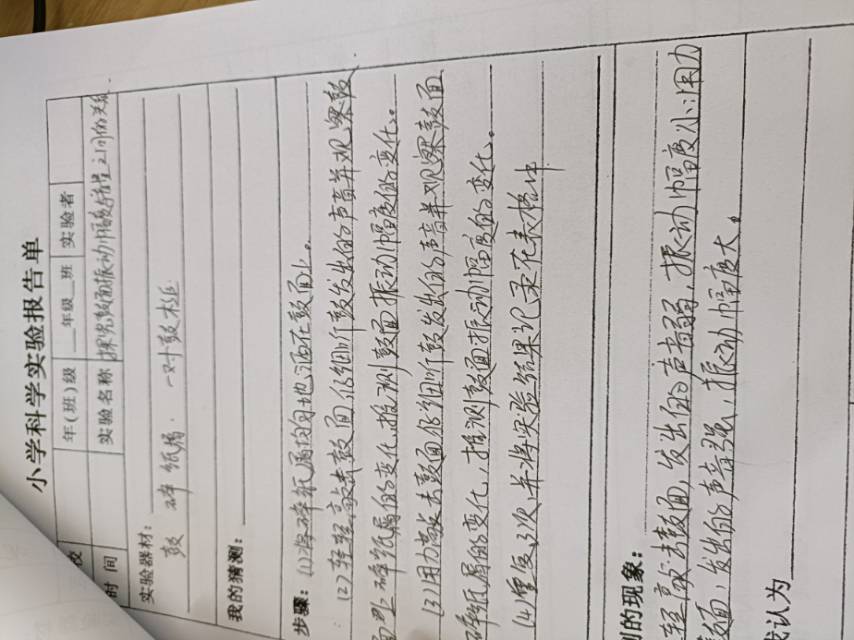 小学科学实验报告单
校 年(班)级 __年级__班 实验者
时间 实验名称 探究鼓面振动幅度与音量之间的关系
实验器材:
鼓 碎纸屑、一对鼓槌
我的猜测:
步骤:(1)将碎纸屑均匀地洒在鼓面上。
(2)轻轻敲击鼓面仔细听鼓发出的声音并观察鼓
面上碎纸屑的变化,推测鼓面振动幅度的变化。
(3)用力敲击鼓面仔细听鼓发出的声音并观察鼓面
碎纸屑的变化,推测鼓面振动幅度的变化。
(4)重复3次,并将实验结果记录在表格中
到的现象:
轻敲击鼓面,发出的声音弱,振动幅度小;用力
鼓面,发出的声音强,振动幅度大。
我认为